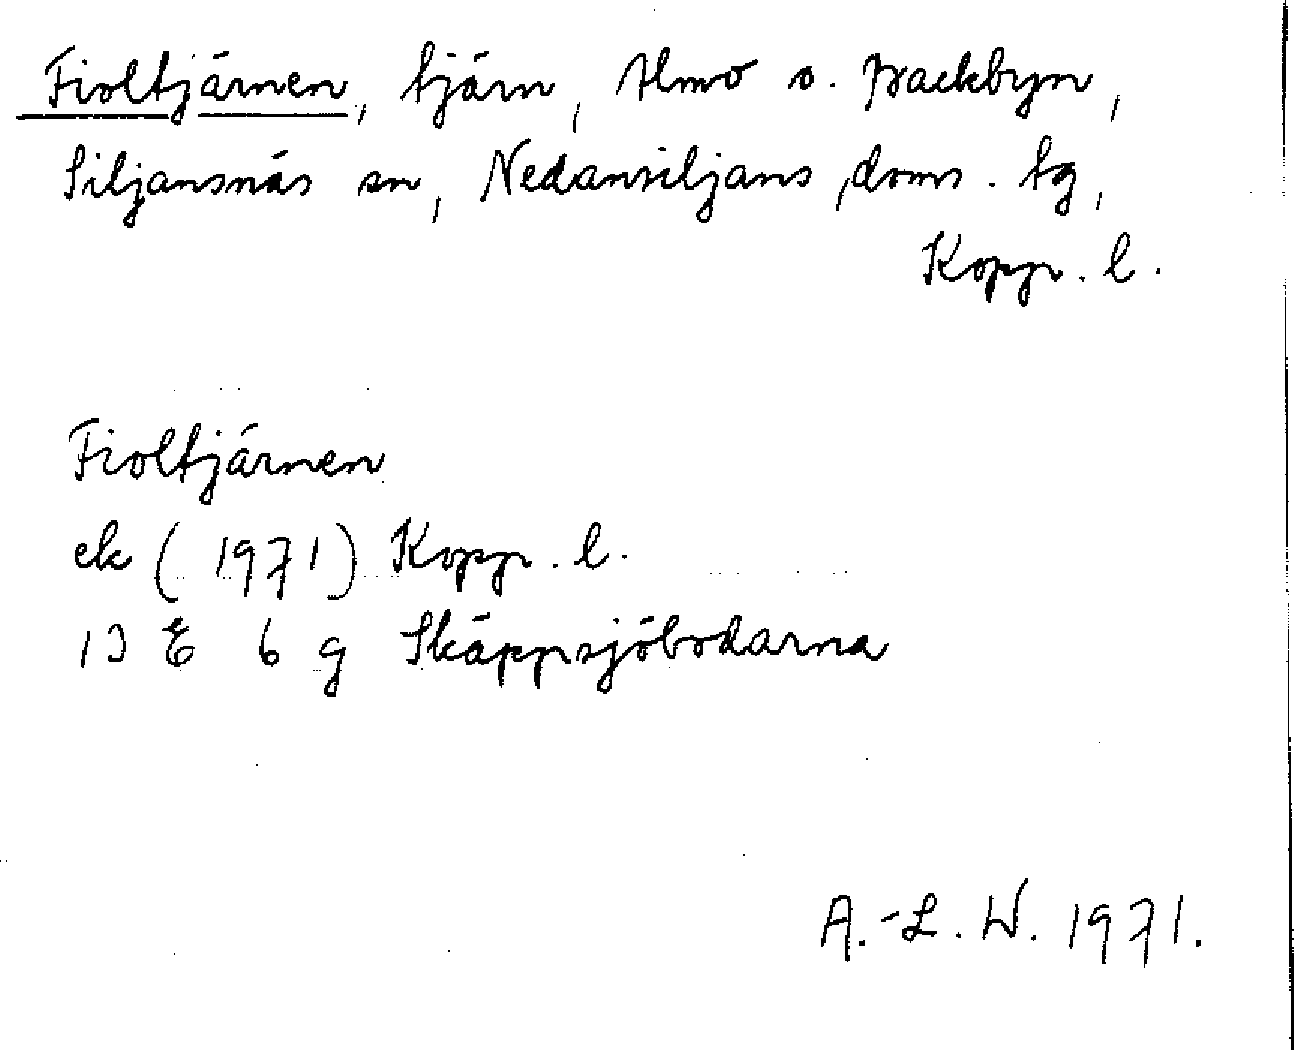 Fioltjärnen, tjärn, Almo o. Backbyn,
Siljansnäs sn, Nedansiljans doms. tg,
Kopp. l.
Fioltjärnen
ek (1971) Kopp. l.
13 E 6 g Skäppsjöbodarna
A.-L. W. 1971.